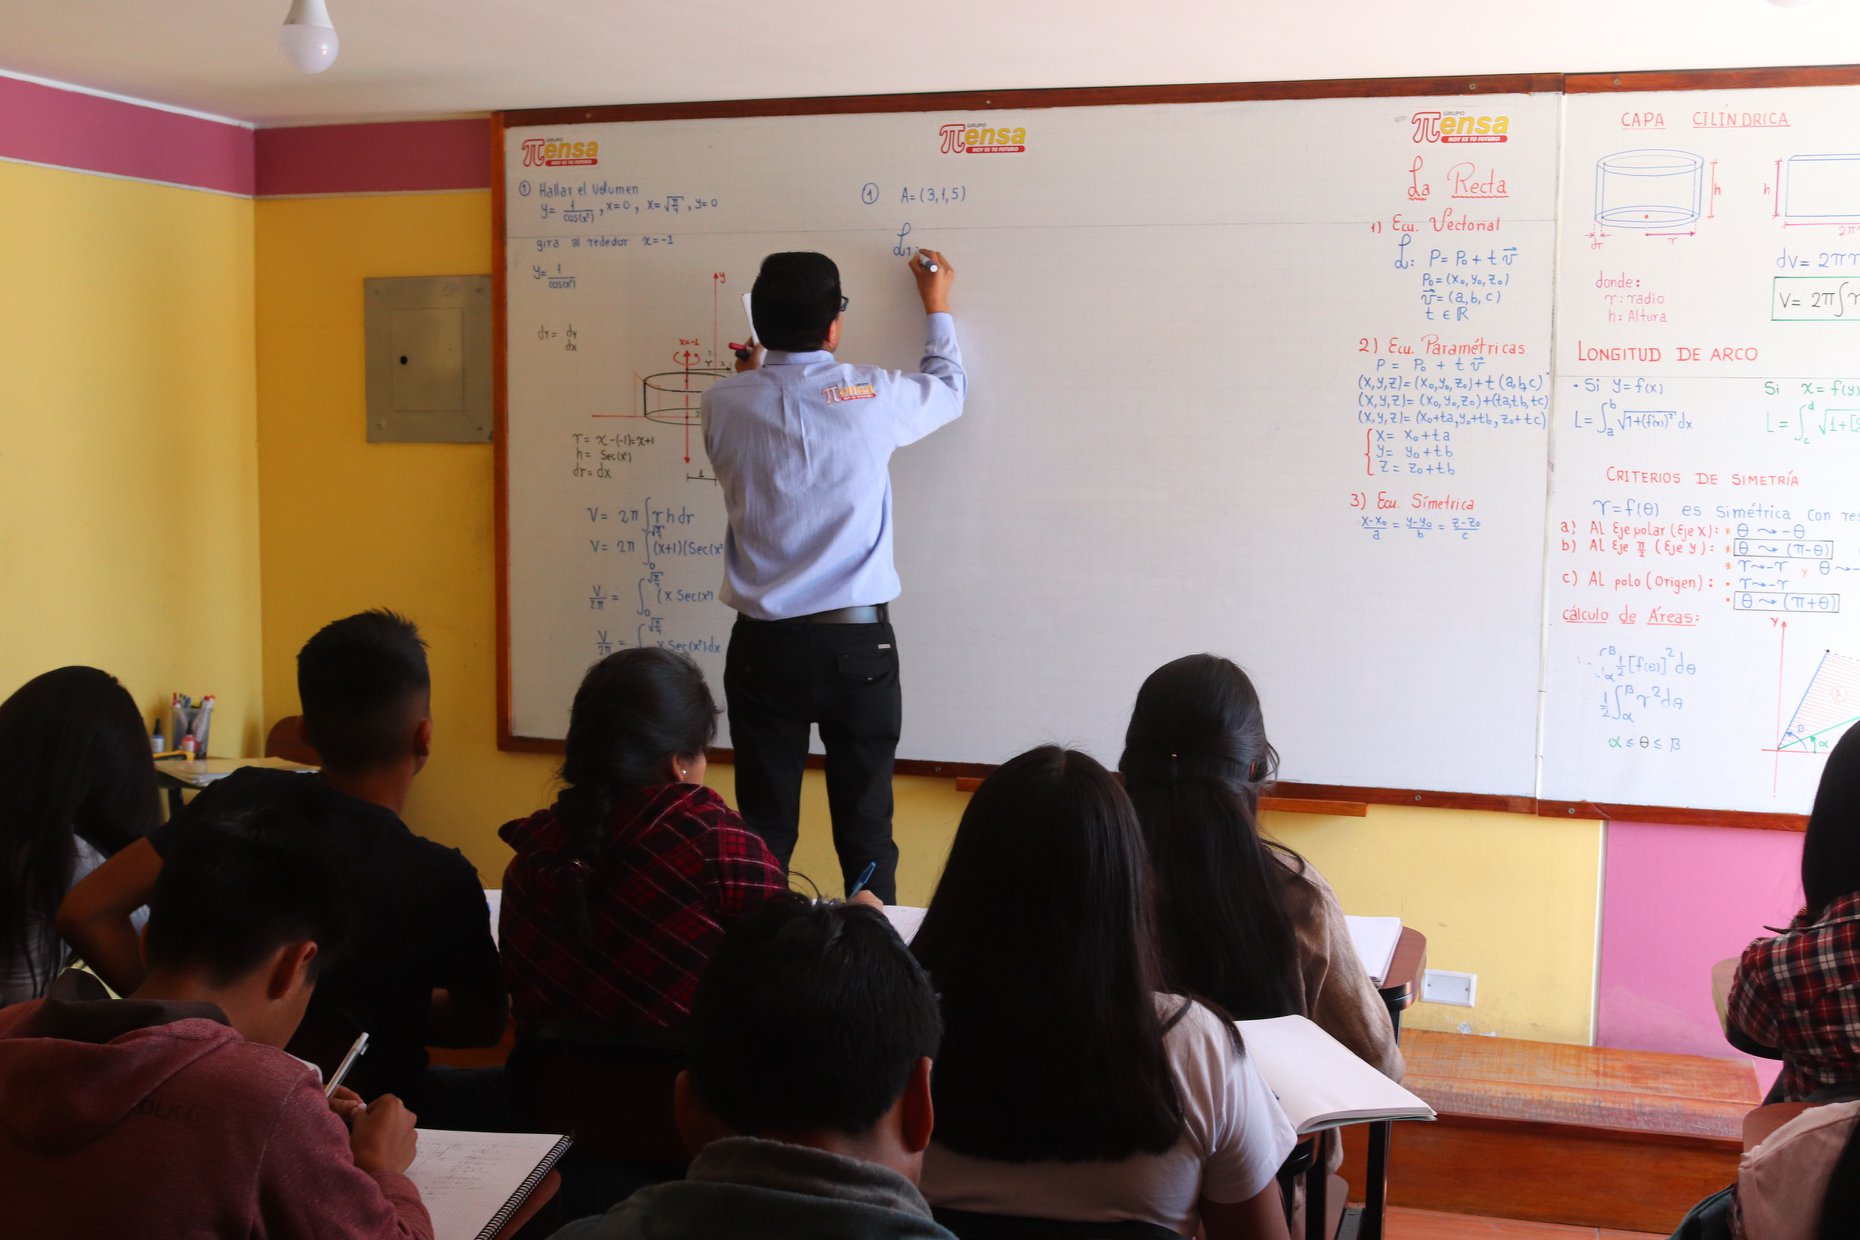 GRUPO
πensa
HOY ES TU FUTURO
① Hallar el Volumen
y= 1/cos(x²) , x=0 , x=√π/4 , y=0
gira al rededor x=-1
y= 1/cos(x²)
dr= dy/dx
y
x=-1
r = x-(-1)=x+1
h = Sec(x²)
dr = dx
V= 2π ∫ r h dr
V= 2π ∫ (x+1)(Sec(x²
V/2π = ∫ (x Sec(x²)
V/2π = ∫ x Sec(x²)dx
GRUPO
πensa
HOY ES TU FUTURO
① A=(3,1,5)
πensa
GRUPO
πensa
HOY ES TU FUTURO
La Recta
1) Ecu. Vectorial
L: P= P₀ + t v⃗
P₀=(x₀,y₀,z₀)
v⃗=(a,b,c)
t ∈ ℝ
2) Ecu. Paramétricas
P = P₀ + t v⃗
(x,y,z)=(x₀,y₀,z₀)+t(a,b,c)
(x,y,z)=(x₀,y₀,z₀)+(ta,tb,tc)
(x,y,z)=(x₀+ta,y₀+tb,z₀+tc)
x= x₀+ta
y= y₀+tb
z= z₀+tb
3) Ecu. Simetrica
x-x₀/a = y-y₀/b = z-z₀/c
CAPA CILÍNDRICA
h
h
dr
r
dV= 2π
donde:
r: radio
h: Altura
V= 2π∫
LONGITUD DE ARCO
• Si y=f(x)
Si x=f(y)
L=∫ₐᵇ √1+(f'(x))² dx
L=
CRITERIOS DE SIMETRÍA
r=f(θ) es simétrica con
a) Al Eje polar (Eje x): * θ ⤳ -θ
b) Al Eje π/2 (Eje y): * θ ⤳ (π-θ)
* r⤳-r y θ⤳-
c) AL polo (origen): • r⤳-r
• θ ⤳ (π+θ)
cálculo de Áreas:
½[f(θ)]²dθ
½∫ r²dθ
α ≤ θ ≤ β
Y
A
β
α